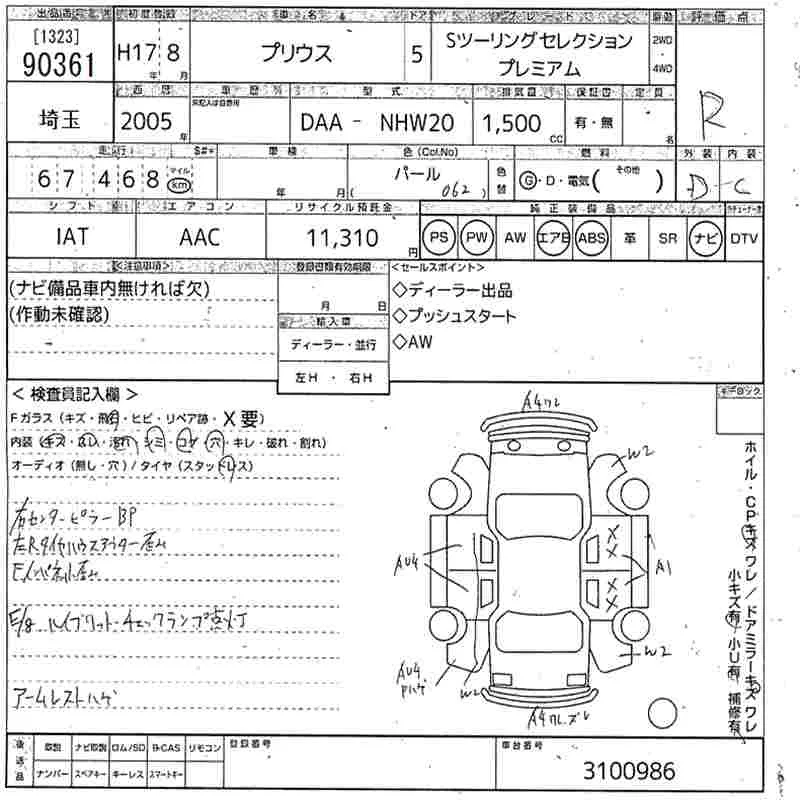 出品番号 初度登録 車名 ドア グレード 駆動 評価点
[1323]
90361 H17年 8月 プリウス 5 Sツーリングセレクション プレミアム 2WD 4WD R
西暦 車歴 型式 排気量 保証書 定員
埼玉 2005年 DAA - NHW20 1,500cc 有・無 名
走行 S#* 車検 色(Col.No) 燃料 外装 内装
67468 マイル km 年 月 パール (062) 色替 G・D・電気( その他 ) D - C
シフト エアコン リサイクル預託金 純正装備品
IAT AAC 11,310円 PS PW AW エアB ABS 革 SR ナビ DTV
<注意事項> 登録書類有効期限 <セールスポイント>
(ナビ備品車内無ければ欠) ◇ディーラー出品
(作動未確認) 月 日 ◇プッシュスタート
輸入車 ◇AW
ディーラー・並行
左H ・ 右H
< 検査員記入欄 >
Fガラス (キズ・飛石・ヒビ・リペア跡・X要)
内装 (キズ・汚れ・シミ・コゲ・穴・キレ・破れ・割れ)
オーディオ (無し・穴) / タイヤ (スタッドレス)
右センターピラーBP
左Rタイヤハウスアウター歪み
E/g ハイブリットチェックランプ点灯
アームレストハゲ
A4ワレ
W2
AU4
A1
W2
AU4
Pハゲ
W2
A4ワレ ズレ
ホイル・CPキズワレ / ドアミラーキズワレ
小キズ有 小U有 補修有
後送品 取説 ナビ取説 ロム/SD B-CAS リモコン 登録番号 車台番号
ナンバー スペアキー キーレス スマートキー 3100986